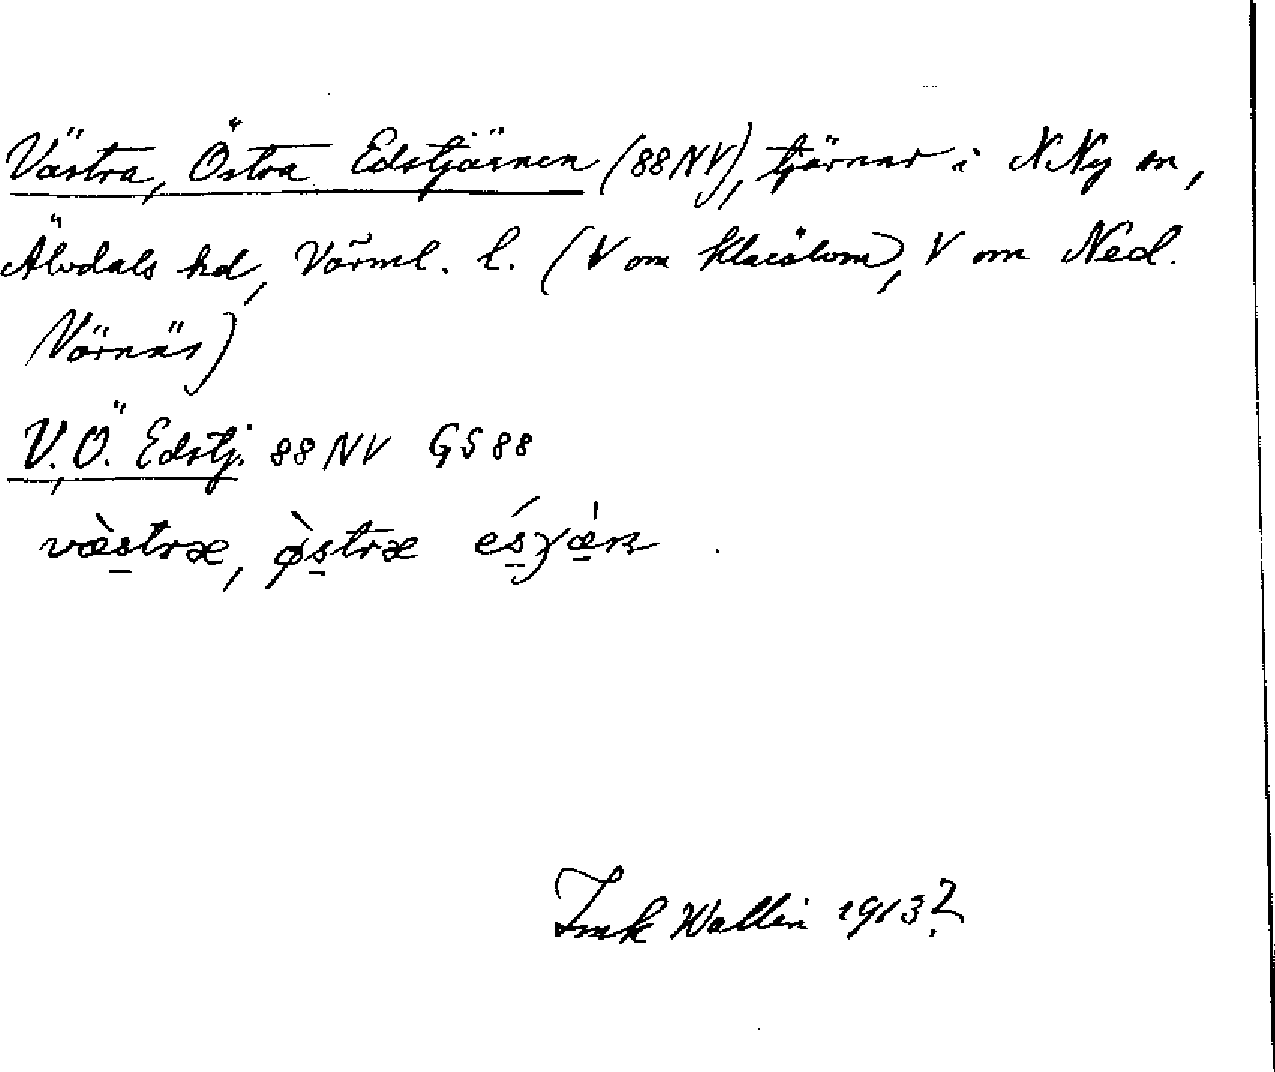 Västra, Östra Edstjärnen (88NV), tjärnar i N Ny sn,
Älvdals hd, Värml. l. (V om Klarälven, V om Ned.
Värnäs)
V., Ö. Edstj. 88 NV GS 88
væ̀stræ, ø̀stræ
Wallin 1913?